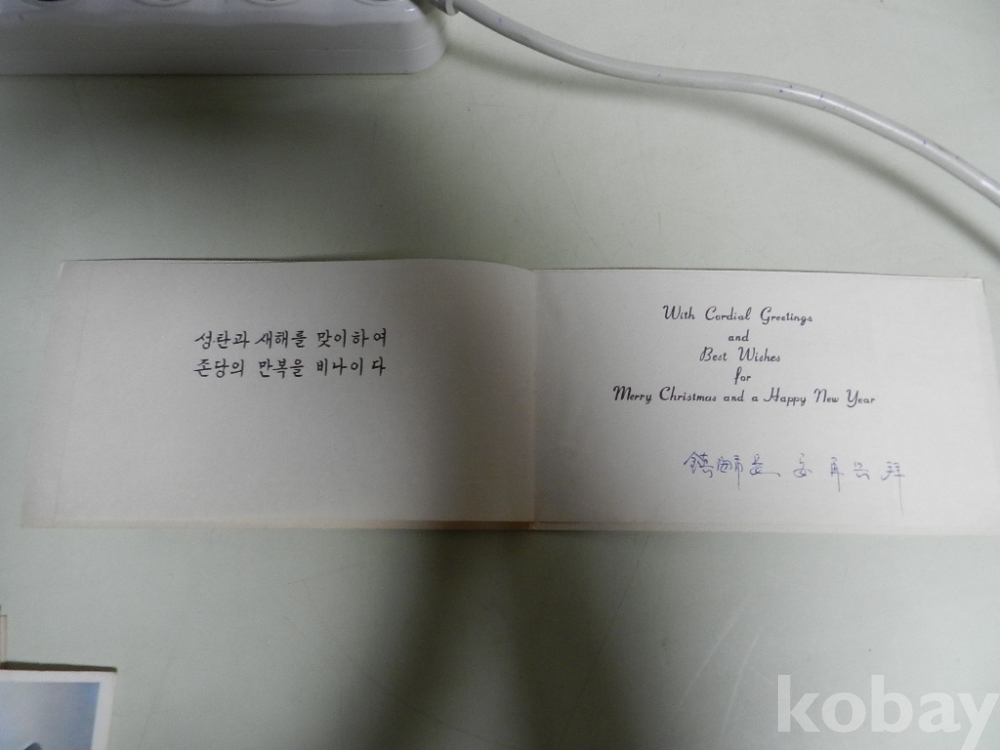 성탄과 새해를 맞이하여
존당의 만복을 비나이다
With Cordial Greetings
and
Best Wishes
for
Merry Christmas and a Happy New Year
拜
kobay